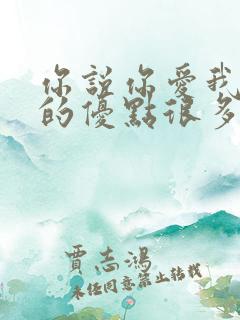 你說你愛我
的優點很多
賈志鴻
未經同意禁止轉載